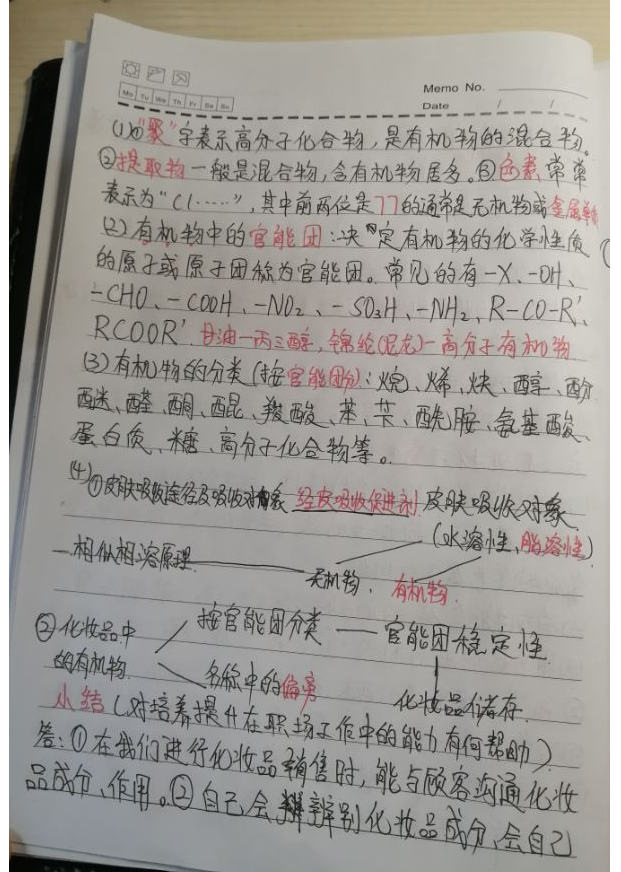 Memo No.
Mo Tu We Th Fr Sa Su
Date / /
(1)①"聚"字表示高分子化合物,是有机物的混合物。
②提取物一般是混合物,含有机物居多。③色素常常
表示为"CI……",其中前两位是77的通常是无机物或金属单质
(2)有机物中的官能团:决定有机物的化学性质
的原子或原子团称为官能团。常见的有-X、-OH、
-CHO、-COOH、-NO2、-SO3H、-NH2、R-CO-R'、
RCOOR'.甘油一丙三醇,锦纶(尼龙)-高分子有机物
(3)有机物的分类(按官能团分):烷、烯、炔、醇、酚
醚、醛、酮、醌、羧酸、苯、苄、酰胺、氨基酸、
蛋白质、糖、高分子化合物等。
(4)①皮肤吸收途径及吸收对象 经皮吸收促进剂 皮肤吸收对象
(水溶性,脂溶性)
—相似相溶原理
无机物. 有机物.
②化妆品中 按官能团分类 — 官能团稳定性
的有机物. 名称中的偏旁
化妆品储存.
小结(对培养提升在职场工作中的能力有何帮助)
答:①在我们进行化妆品销售时,能与顾客沟通化妆
品成分、作用。②自己会辨别化妆品成分,会自己